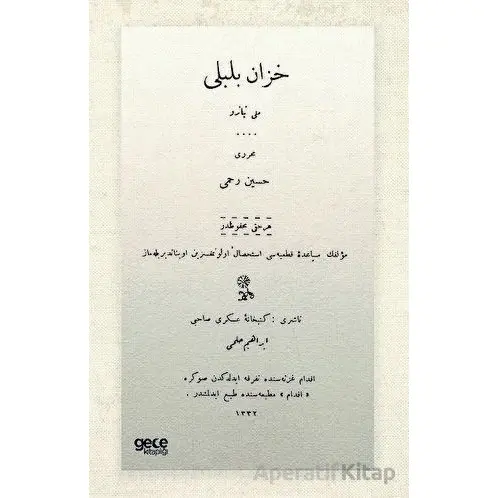 خزان بلبلی
ملی تیاترو
....
محرری
حسین رحمی
هر حقی محفوظدر
مؤلفك مساعدۀ قطعیه‌سی استحصال اولونمقسزین اویناندیریله‌ماز
ناشری : كتبخانۀ عسكری صاحبی
ابراهیم حلمی
اقدام غزته‌سنده تفرقه ایدلدكدن صوكره
« اقدام » مطبعه‌سنده طبع ایدلمشدر .
١٣٣٢
gece
kitaplığı
AperatifKitap